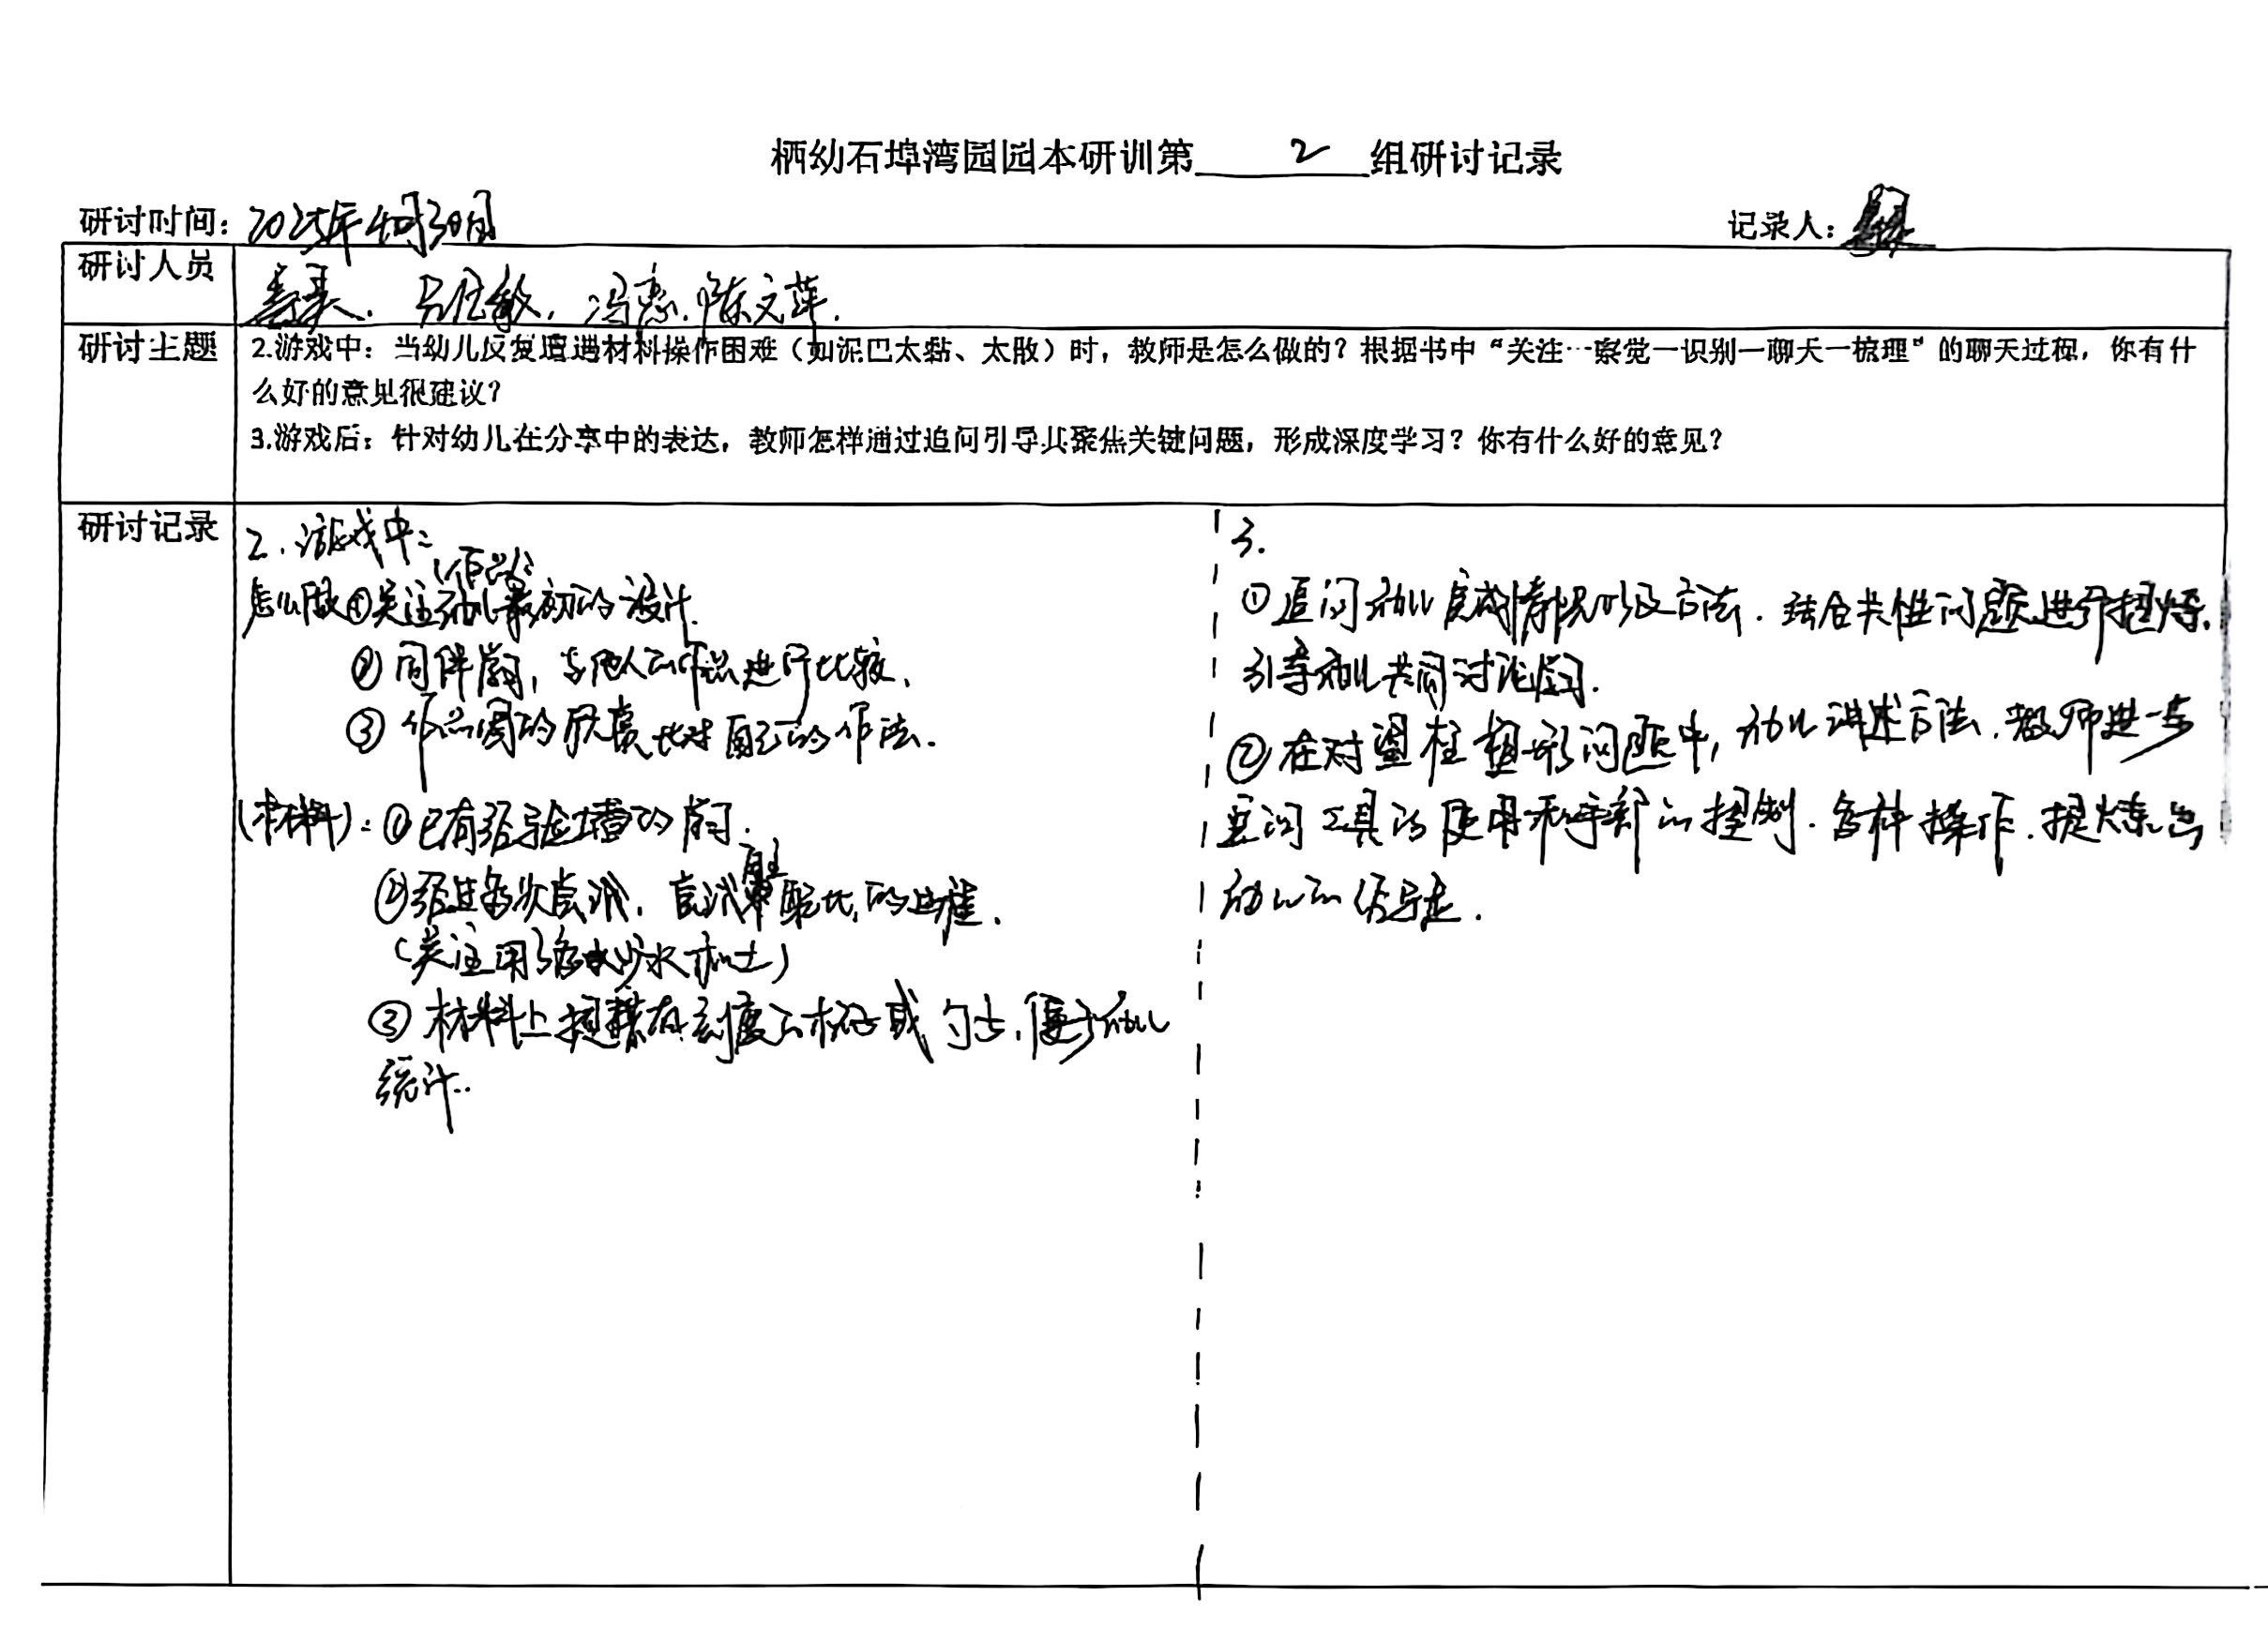 栖幼石埠湾园园本研训第2组研讨记录
研讨时间：2025年4月30日
记录人：
研讨人员
冯惠、陈文萍.
研讨主题
2.游戏中：当幼儿反复遭遇材料操作困难（如泥巴太黏、太散）时，教师是怎么做的？根据书中“关注…察觉—识别—聊天—梳理”的聊天过程，你有什
么好的意见很建议？
3.游戏后：针对幼儿在分享中的表达，教师怎样通过追问引导其聚焦关键问题，形成深度学习？你有什么好的意见？
研讨记录
2. 游戏中：
(作品)
怎么做①关注幼儿最初的设计.
②同伴学习，与他人的作品进行比较、
③作品的欣赏比对自己的作法.
(材料)：①已有经验的学习.
自主
②经过多次尝试、尝试配比的过程.
(关注用多少水和土)
③材料上提供有刻度的杯子或勺子，便于幼儿
统计..
3.
①追问幼儿完成情况以及方法. 结合共性问题进行提炼、
引导幼儿共同讨论学习.
②在对盘柱变形问题中，幼儿讲述方法. 教师进一步
追问工具的使用和手部的控制. 各种操作. 提炼出
幼儿的经验.